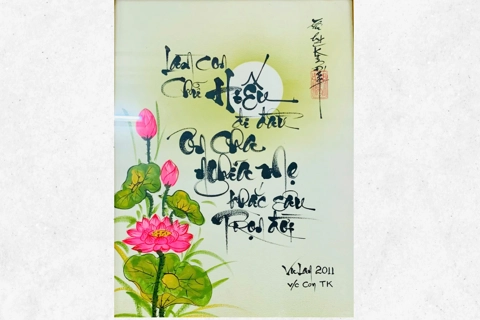 Làm con
Chữ Hiếu
đi đầu
Ơn Cha
Nghĩa Mẹ
khắc sâu
Trọn đời
Vu Lan 2011
v/c Con TK